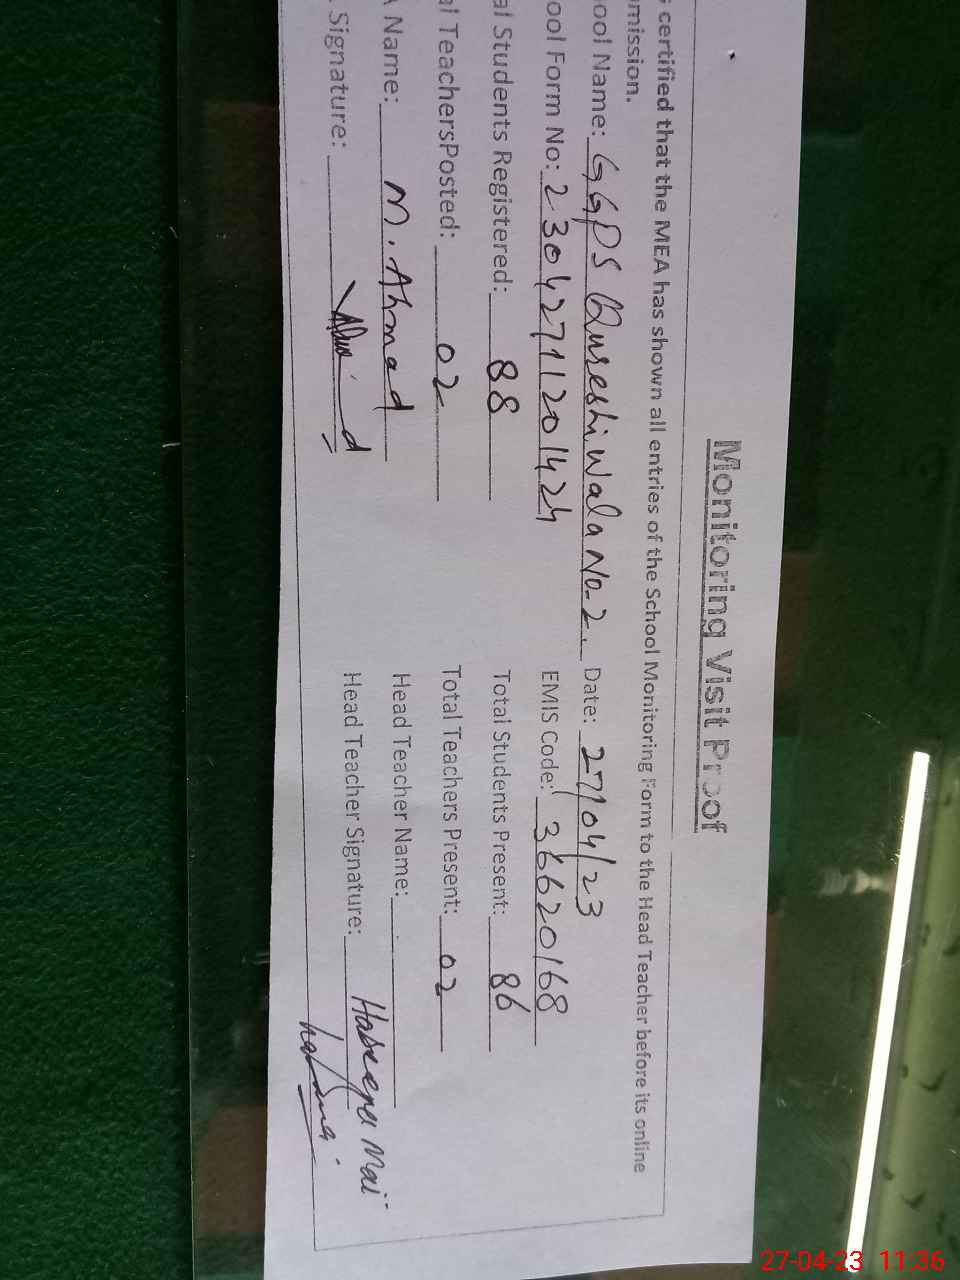 Monitoring Visit Proof
certified that the MEA has shown all entries of the School Monitoring Form to the Head Teacher before its online
mission.
ool Name: GGPS Qureshi Wala No-2. Date: 27/04/23
ool Form No: 23042711201424 EMIS Code: 36620168
al Students Registered: 88 Total Students Present: 86
al TeachersPosted: 02 Total Teachers Present: 02
Name: M. Ahmad Head Teacher Name:
Signature: Head Teacher Signature: Mai
27-04-23 11:36